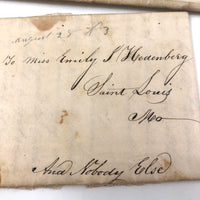 August 28 No 3
To Miss Emily S Hodenberg
Saint Louis
Mo
And Nobody Else